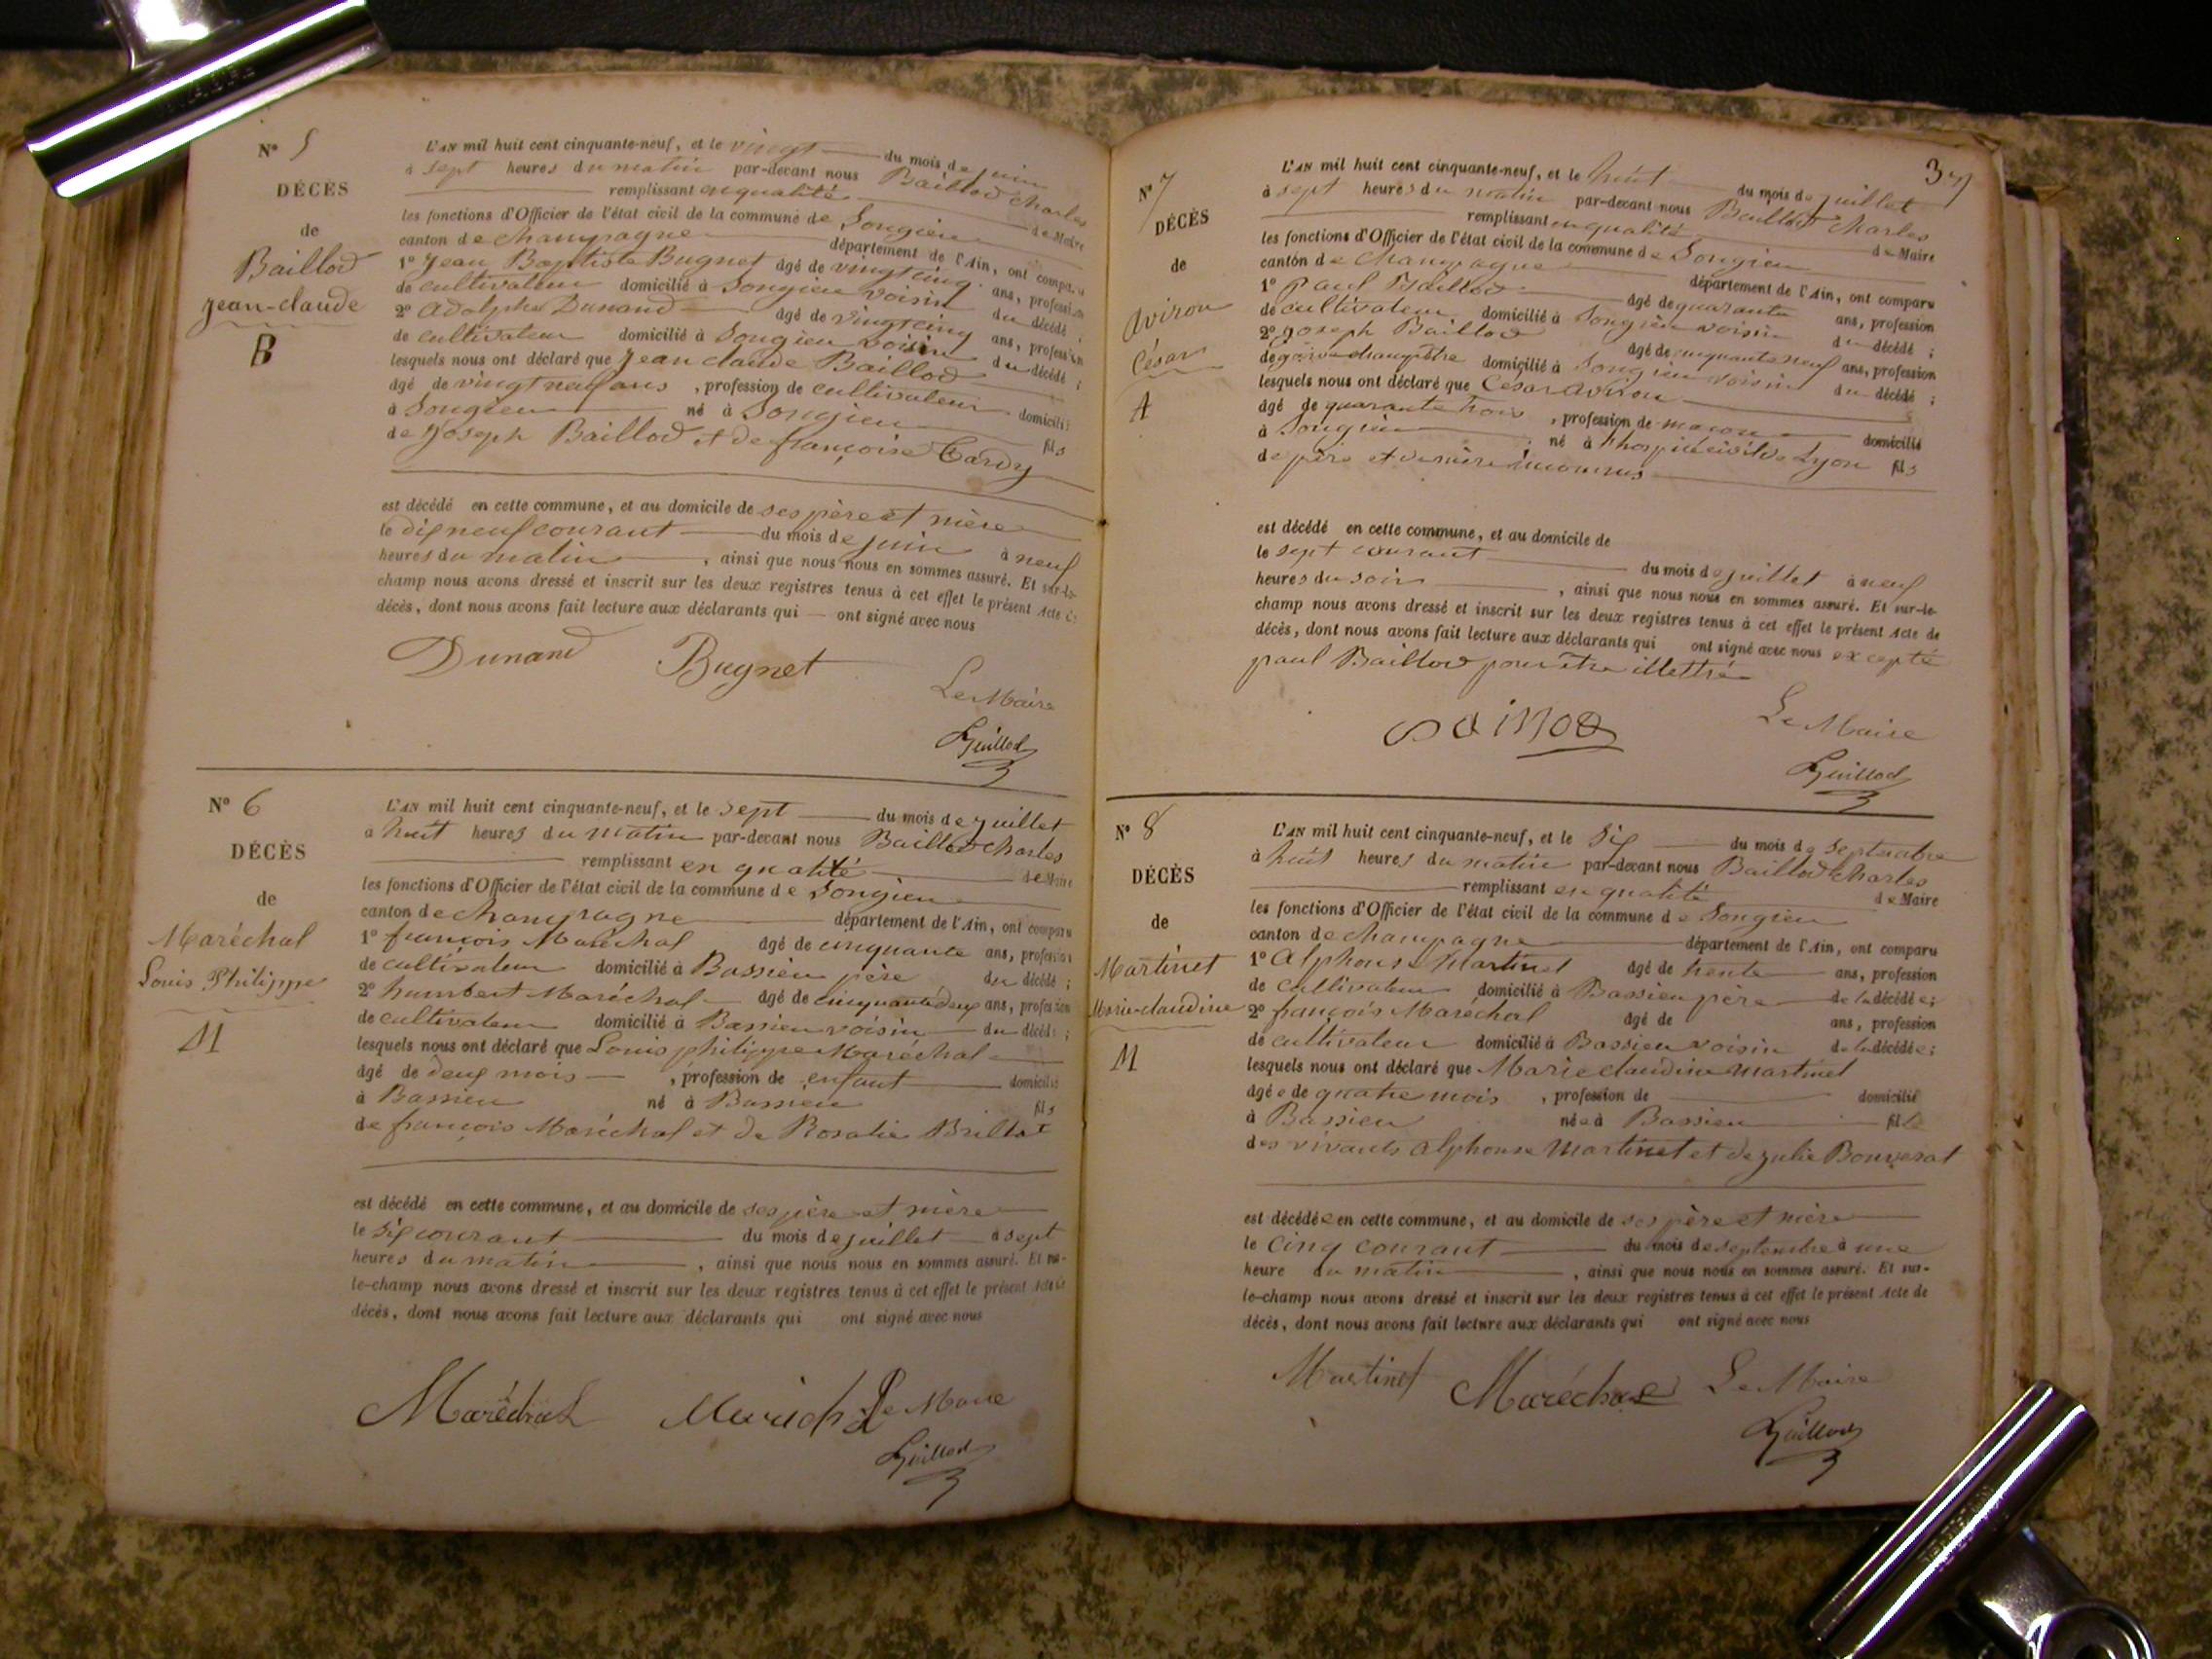 N° 5
DÉCÈS
de
Baillod
Jean-claude
B
L'AN mil huit cent cinquante-neuf, et le vingt du mois de juin
à sept heures du matin par-devant nous Baillod Charles
remplissant en qualité de Maire
les fonctions d'Officier de l'état civil de la commune de Songieu
canton de Champagne département de l'Ain, ont comparu
1° Jean Baptiste Bugnet âgé de vingt cinq ans, profession
de cultivateur domicilié à Songieu voisin du décédé ;
2° Adolphe Dunand âgé de vingt cinq ans, profession
de cultivateur domicilié à Songieu voisin du décédé ;
lesquels nous ont déclaré que Jean claude Baillod
âgé de vingt neuf ans , profession de cultivateur domicilié
à Songieu né à Songieu fils
de Joseph Baillod et de françoise Cardy
est décédé en cette commune, et au domicile de ses père et mère
le dix neuf courant du mois de juin à neuf
heures du matin , ainsi que nous nous en sommes assuré. Et sur-le-
champ nous avons dressé et inscrit sur les deux registres tenus à cet effet le présent Acte de
décès, dont nous avons fait lecture aux déclarants qui — ont signé avec nous
Dunand Bugnet
Le Maire
Baillod
N° 6
DÉCÈS
de
Maréchal
Louis Philippe
M
L'AN mil huit cent cinquante-neuf, et le sept du mois de juillet
à huit heures du matin par-devant nous Baillod Charles
remplissant en qualité de Maire
les fonctions d'Officier de l'état civil de la commune de Songieu
canton de Champagne département de l'Ain, ont comparu
1° françois Maréchal âgé de cinquante ans, profession
de cultivateur domicilié à Bassieu père du décédé ;
2° humbert Maréchal âgé de cinquante deux ans, profession
de cultivateur domicilié à Bassieu voisin du décédé ;
lesquels nous ont déclaré que Louis philippe Maréchal
âgé de deux mois , profession de enfant domicilié
à Bassieu né à Bassieu fils
de françois Maréchal et de Rosalie Brillat
est décédé en cette commune, et au domicile de ses père et mère
le six courant du mois de juillet à sept
heures du matin , ainsi que nous nous en sommes assuré. Et sur-
le-champ nous avons dressé et inscrit sur les deux registres tenus à cet effet le présent Acte de
décès, dont nous avons fait lecture aux déclarants qui ont signé avec nous
Maréchal Maréchal Le Maire
Baillod
37
N° 7
DÉCÈS
de
Aviron
César
A
L'AN mil huit cent cinquante-neuf, et le huit du mois de juillet
à sept heures du matin par-devant nous Baillod Charles
remplissant en qualité de Maire
les fonctions d'Officier de l'état civil de la commune de Songieu
canton de Champagne département de l'Ain, ont comparu
1° paul Baillod âgé de quarante ans, profession
de cultivateur domicilié à Songieu voisin du décédé ;
2° Joseph Baillod âgé de cinquante neuf ans, profession
de garde champêtre domicilié à Songieu voisin du décédé ;
lesquels nous ont déclaré que César Aviron
âgé de quarante trois , profession de macon domicilié
à Songieu né à l'hospice civil de Lyon fils
de père et de mère inconnus
est décédé en cette commune, et au domicile de
le sept courant du mois de juillet à neuf
heures du soir , ainsi que nous nous en sommes assuré. Et sur-le-
champ nous avons dressé et inscrit sur les deux registres tenus à cet effet le présent Acte de
décès, dont nous avons fait lecture aux déclarants qui ont signé avec nous excepté
paul Baillod pour être illettré
Le Maire
Baillod
N° 8
DÉCÈS
de
Martinet
Marie-claudine
M
L'AN mil huit cent cinquante-neuf, et le six du mois de septembre
à huit heures du matin par-devant nous Baillod Charles
remplissant en qualité de Maire
les fonctions d'Officier de l'état civil de la commune de Songieu
canton de Champagne département de l'Ain, ont comparu
1° Alphonse Martinet âgé de trente ans, profession
de cultivateur domicilié à Bassieu père de la décédée ;
2° françois Maréchal âgé de ans, profession
de cultivateur domicilié à Bassieu voisin de la décédée ;
lesquels nous ont déclaré que Marie claudine Martinet
âgée de quatre mois , profession de domicilié
à Bassieu née à Bassieu fille
des vivants Alphonse Martinet et de julie Bouverat
est décédée en cette commune, et au domicile de ses père et mère
le cinq courant du mois de septembre à une
heure du matin , ainsi que nous nous en sommes assuré. Et sur-
le-champ nous avons dressé et inscrit sur les deux registres tenus à cet effet le présent Acte de
décès, dont nous avons fait lecture aux déclarants qui ont signé avec nous
Martinet Maréchal Le Maire
Baillod